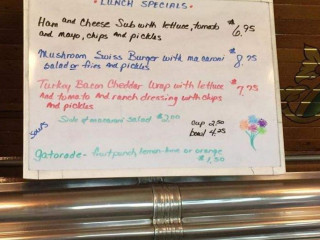 LUNCH SPECIALS
Ham and Cheese Sub with lettuce, tomato $6.95
and mayo, chips and pickles
Mushroom Swiss Burger with macaroni $8.95
salad or fries and pickles
Turkey Bacon Cheddar Wrap with lettuce $7.95
and tomato and ranch dressing with chips
and pickles
Side of macaroni salad $2.00
Soups
cup 2.50
bowl 4.25
gatorade - fruit punch, lemon-lime or orange